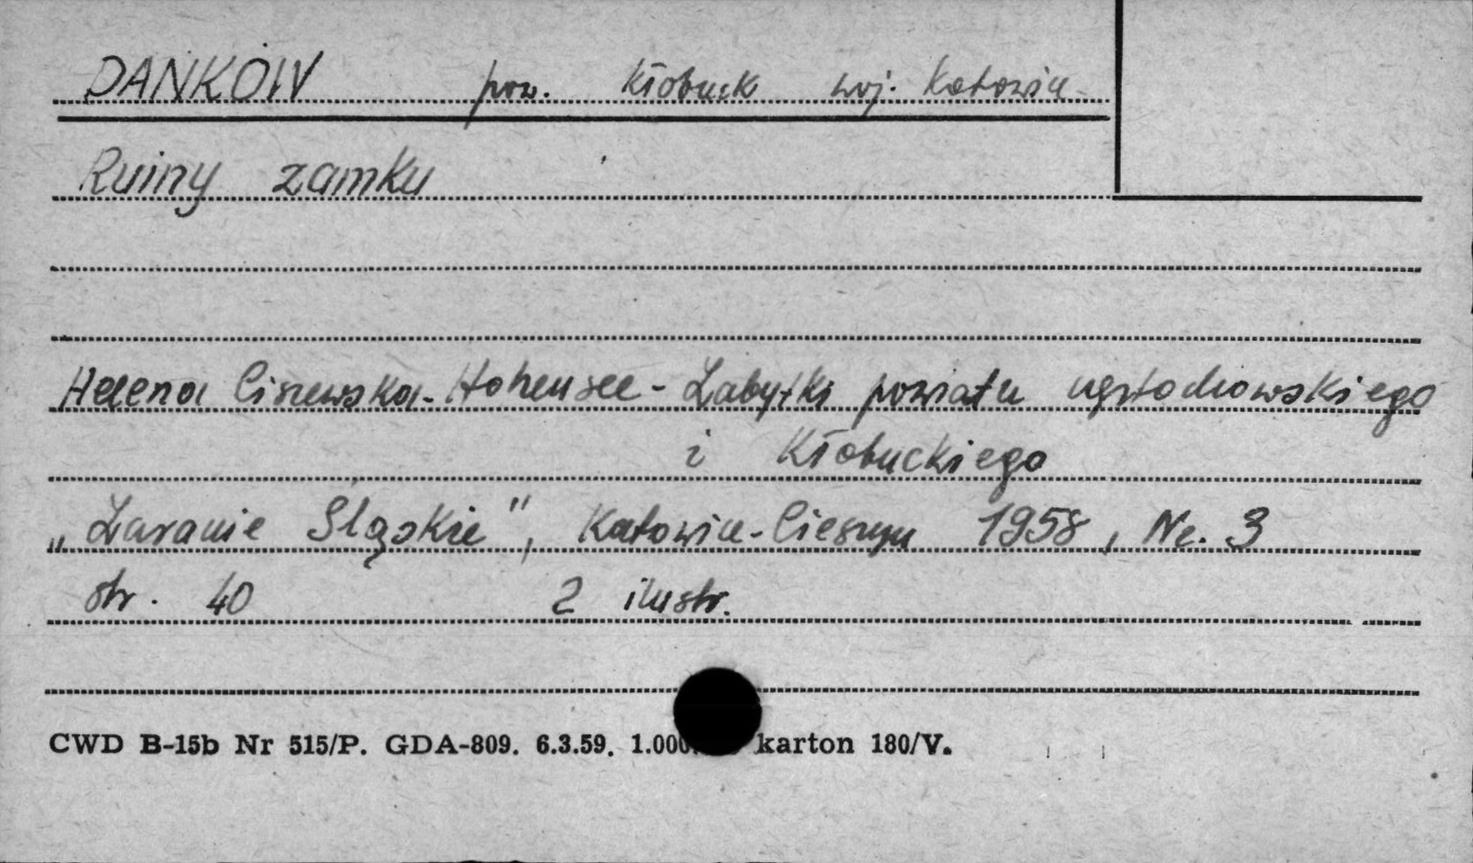 DANKÓW pow. Kłobuck woj. Katowice
Ruiny zamku
Helena Ciszewska-Hohensee - Zabytki powiatu częstochowskiego
i Kłobuckiego
„Zaranie Śląskie", Katowice-Cieszyn 1958, Nr. 3
str. 40 2 ilustr.
CWD B-15b Nr 515/P. GDA-809. 6.3.59. 1.000. karton 180/V.